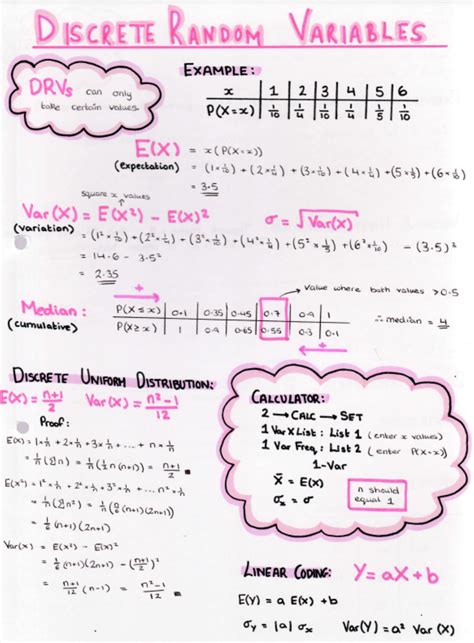 DISCRETE RANDOM VARIABLES
DRVs can only
take certain values.
EXAMPLE:
x 1 2 3 4 5 6
P(X=x) 1/10 1/4 1/10 1/4 1/5 1/10
E(X) = x(P(X=x))
(expectation) = (1×1/10) + (2×1/4) + (3×1/10) + (4×1/4) + (5×1/5) + (6×1/10)
= 3.5
square x values
Var(X) = E(X²) - E(X)² σ = √Var(X)
(variation) = (1²×1/10) + (2²×1/4) + (3²×1/10) + (4²×1/4) + (5²×1/5) + (6²×1/10) - (3.5)²
= 14.6 - 3.5²
= 2.35
+
value where both values >0.5
Median: P(X≤x) 0.1 0.35 0.45 0.7 0.9 1 ∴ median = 4
(cumulative) P(X≥x) 1 0.9 0.65 0.55 0.3 0.1
+
DISCRETE UNIFORM DISTRIBUTION:
E(X) = n+1/2 Var(X) = n²-1/12
Proof:
E(X) = 1×1/n + 2×1/n + 3×1/n + ... + n×1/n
= 1/n(Σn) = 1/n(1/2n(n+1)) = n+1/2
E(X²) = 1²×1/n + 2²×1/n + 3²×1/n + ... + n²×1/n
= 1/n(Σn²) = 1/n(n/6(n+1)(2n+1))
= 1/6(n+1)(2n+1)
Var(X) = E(X²) - E(X)²
= 1/6(n+1)(2n+1) - (n+1/2)²
= n+1/12(n-1) = n²-1/12
CALCULATOR:
2 → CALC → SET
1 Var XList : List 1 (enter x values)
1 Var Freq : List 2 (enter P(X=x))
1-Var
x̄ = E(X)
σx = σ
n should
equal 1
LINEAR CODING: Y=aX+b
E(Y) = a E(X) + b
σY = |a| σx Var(Y) = a² Var(X)